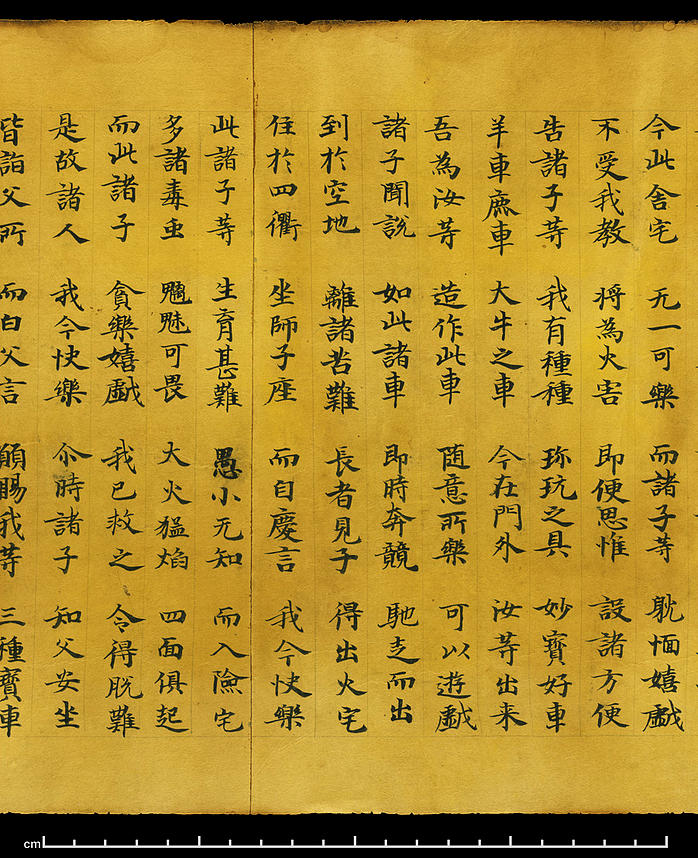 今此舍宅 无一可樂 而諸子等 躭湎嬉戲
不受我教 将為火害 即便思惟 設諸方便
告諸子等 我有種種 珎玩之具 妙寳好車
羊車鹿車 大牛之車 今在門外 汝等出来
吾為汝等 造作此車 随意所樂 可以遊戲
諸子聞說 如此諸車 即時奔競 馳走而出
到於空地 離諸苦難 長者見子 得出火宅
住於四衢 坐師子座 而自慶言 我今快樂
此諸子等 生育甚難 愚小无知 而入險宅
多諸毒虫 魑魅可畏 大火猛焰 四面俱起
而此諸子 貪樂嬉戲 我已救之 令得脫難
是故諸人 我今快樂 尒時諸子 知父安坐
皆詣父所 而白父言 願賜我等 三種寳車
cm